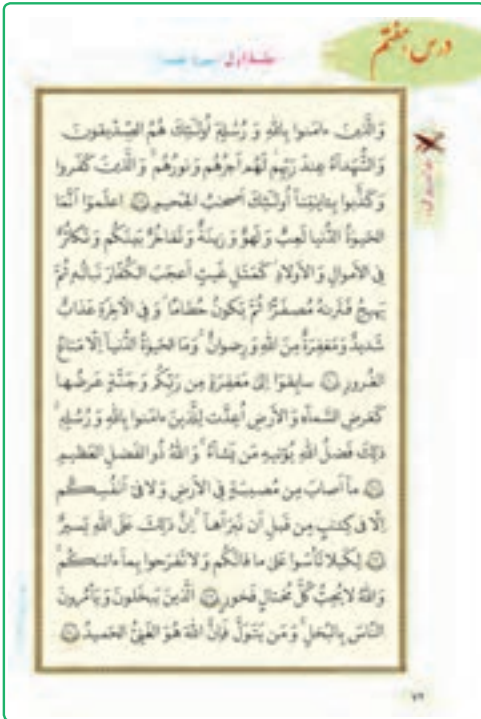 درس هفتم
جلسه اول
وَالَّذينَ ءامَنوا بِاللهِ وَ رُسُلِهِ أُولٰئِكَ هُمُ الصِّدّيقونَ
وَالشُّهَداءُ عِندَ رَبِّهِم لَهُم أَجرُهُم وَ نورُهُم وَالَّذينَ كَفَروا
وَ كَذَّبوا بِـٔايٰتِنا أُولٰئِكَ أَصحٰبُ الجَحيمِ ۝ اعلَموا أَنَّمَا
الحَيوٰةُ الدُّنيا لَعِبٌ وَ لَهوٌ وَ زينَةٌ وَ تَفاخُرٌ بَينَكُم وَ تَكاثُرٌ
فِي الأَموالِ وَ الأَولادِ كَمَثَلِ غَيثٍ أَعجَبَ الكُفّارَ نَباتُهُ ثُمَّ
يَهيجُ فَتَرىٰهُ مُصفَرًّا ثُمَّ يَكونُ حُطامًا وَ فِي الآخِرَةِ عَذابٌ
شَديدٌ وَ مَغفِرَةٌ مِنَ اللهِ وَ رِضوانٌ وَ مَا الحَيوٰةُ الدُّنيا إِلّا مَتاعُ
الغُرورِ ۝ سابِقوا إِلىٰ مَغفِرَةٍ مِن رَبِّكُم وَ جَنَّةٍ عَرضُها
كَعَرضِ السَّماءِ وَ الأَرضِ أُعِدَّت لِلَّذينَ ءامَنوا بِاللهِ وَ رُسُلِهِ
ذٰلِكَ فَضلُ اللهِ يُؤتيهِ مَن يَشاءُ وَ اللهُ ذُو الفَضلِ العَظيمِ
۝ ما أَصابَ مِن مُصيبَةٍ فِي الأَرضِ وَ لا في أَنفُسِكُم
إِلّا في كِتٰبٍ مِن قَبلِ أَن نَبرَأَها إِنَّ ذٰلِكَ عَلَى اللهِ يَسيرٌ
۝ لِكَيلا تَأسَوا عَلىٰ ما فاتَكُم وَ لا تَفرَحوا بِما ءاتىٰكُم
وَ اللهُ لا يُحِبُّ كُلَّ مُختالٍ فَخورٍ ۝ الَّذينَ يَبخَلونَ وَ يَأمُرونَ
النّاسَ بِالبُخلِ وَ مَن يَتَوَلَّ فَإِنَّ اللهَ هُوَ الغَنِيُّ الحَميدُ ۝